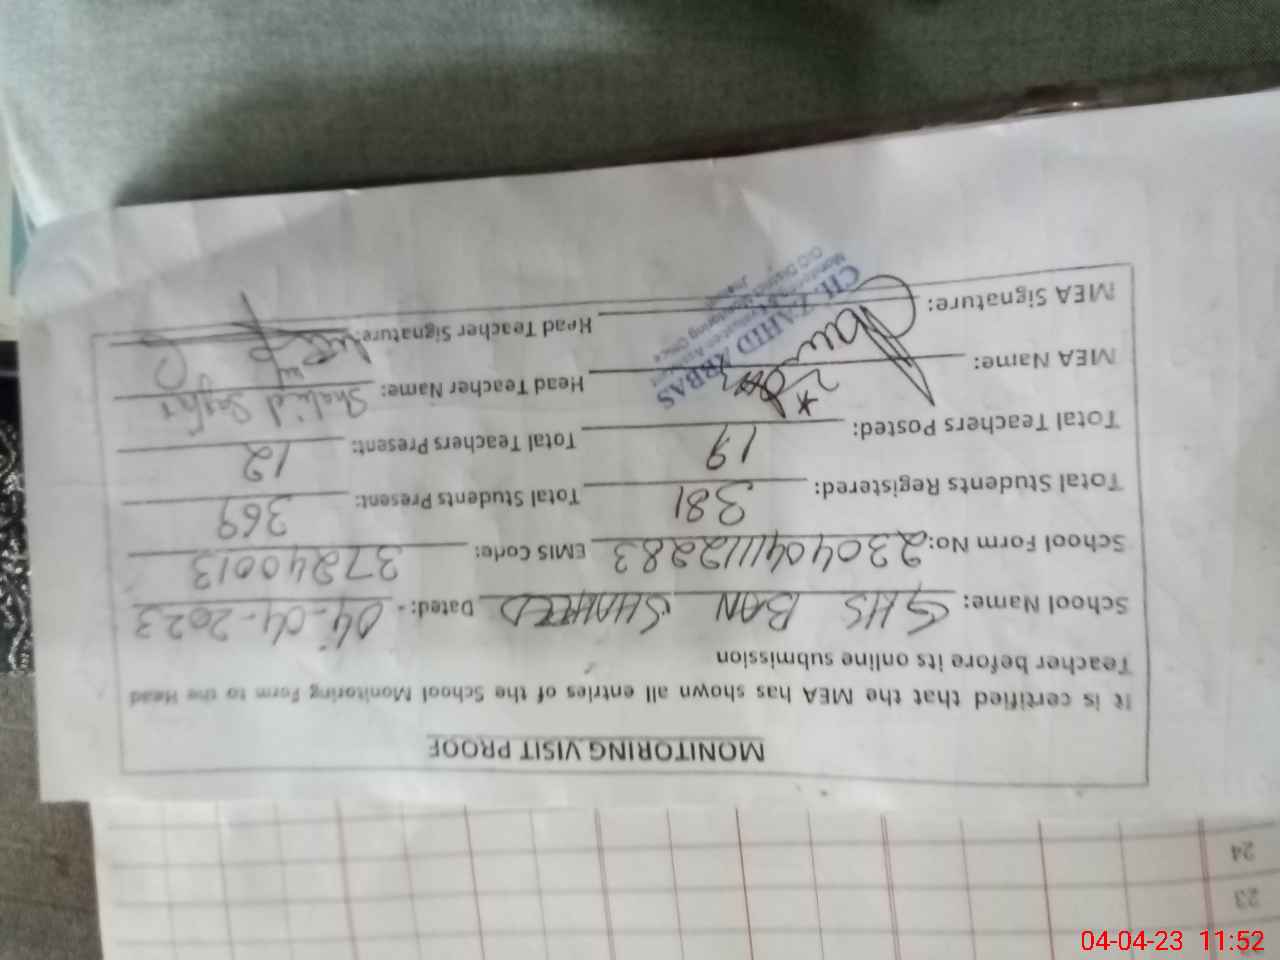 MONITORING VISIT PROOF
It is certified that the MEA has shown all entries of the School Monitoring Form to the Head
Teacher before its online submission
School Name: GHS BAN SHAHEED Dated: 04-04-2023
School Form No: 2304041112283 EMIS Code: 37240013
Total Students Registered: 381 Total Students Present: 369
Total Teachers Posted: 19 Total Teachers Present: 12
MEA Name: Head Teacher Name: Shahid
MEA Signature: Head Teacher Signature:
CH. ZAHID ABBAS
Monitoring & Evaluation Assistant
O/O District Monitoring Office
24
23
04-04-23 11:52